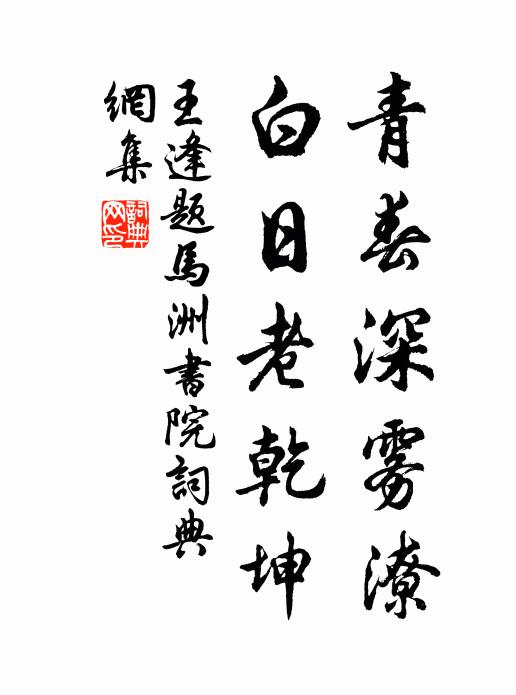 青春深雾潦
白日老乾坤
王逢题馬洲書院詞典
網集
詞典网印